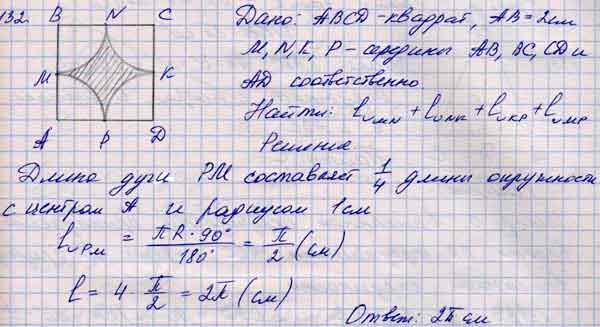 132. B N C
Дано: ABCD-квадрат, AB=2см
M, N, K, P - середины AB, BC, CD и
M K
AD соответственно.
Найти: l∪MN + l∪NK + l∪KP + l∪MP
A P D
Решение
Длина дуги PM составляет 1/4 длины окружности
с центром A и радиусом 1см
l∪PM = πR·90°/180° = π/2 (см)
l = 4·π/2 = 2π (см)
Ответ: 2π см